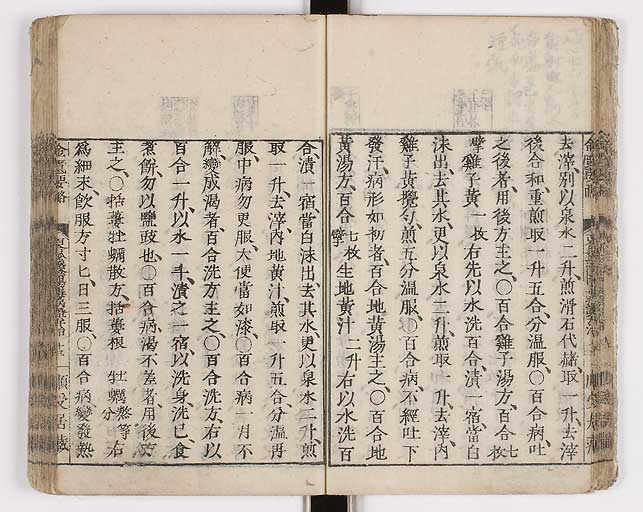 去滓別以泉水二升煎滑石代赭取一升去滓
後合和重煎取一升五合分溫服○百合病吐
之後者用後方主之○百合雞子湯方百合七枚
擘雞子黃一枚右先以水洗百合漬一宿當白
沫出去其水更以泉水二升煎取一升去滓内
雞子黃攪勻煎五分溫服○百合病不經吐下
發汗病形如初者百合地黃湯主之○百合地
黃湯方百合七枚擘生地黃汁一升右以水洗百
合漬一宿當白沫出去其水更以泉水二升煎
取一升去滓内地黃汁煎取一升五合分溫再
服中病勿更服大便當如漆○百合病一月不
解變成渴者百合洗方主之○百合洗方右以
百合一升以水一斗漬之一宿以洗身洗已食
煮餅勿以鹽豉也○百合病渴不差者用後方
主之○括蔞牡蠣散方括蔞根 牡蠣熬等分右
爲細末飲服方寸匕日三服○百合病變發熱
金匱要略